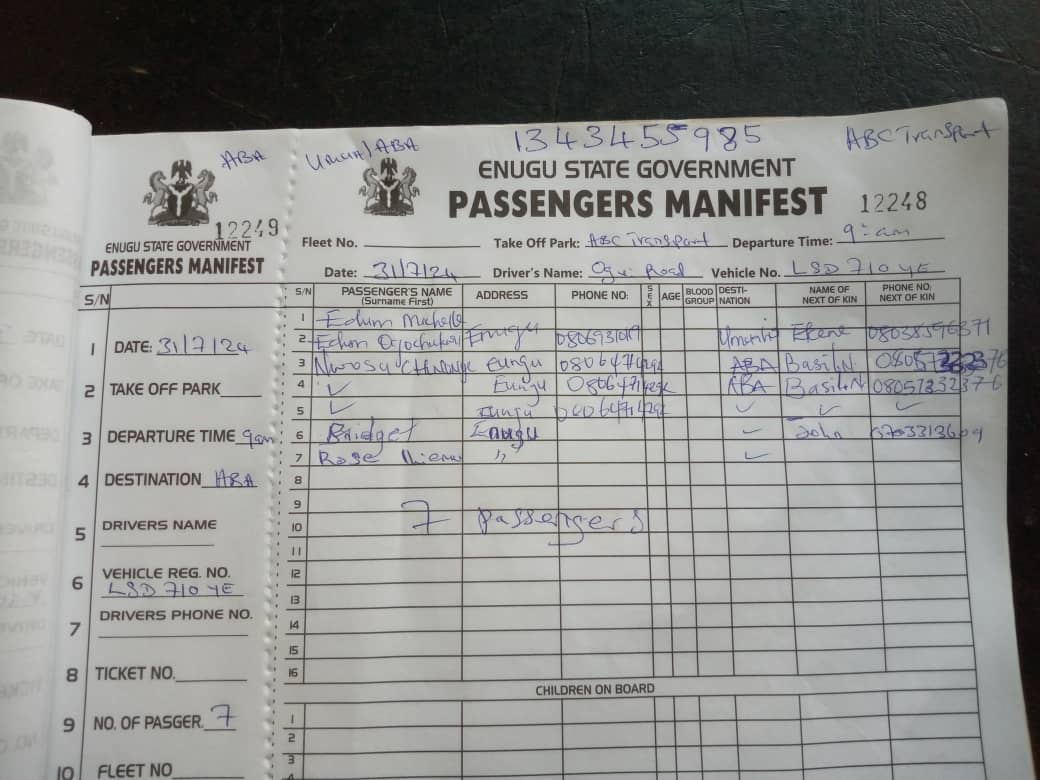 ABA
12249
ENUGU STATE GOVERNMENT
PASSENGERS MANIFEST
S/N
1 DATE: 31/7/24
2 TAKE OFF PARK
3 DEPARTURE TIME 9am
4 DESTINATION ABA
5 DRIVERS NAME
6 VEHICLE REG. NO.
LSD 710 YE
7 DRIVERS PHONE NO.
8 TICKET NO.
9 NO. OF PASGER. 7
10 FLEET NO
/ABA 1343455985 ABC Transport
ENUGU STATE GOVERNMENT
PASSENGERS MANIFEST 12248
Fleet No. Take Off Park: ABC Transport Departure Time: 9:am
Date: 31/7/24 Driver's Name: Ogui Road Vehicle No. LSD 710 YE
S/N PASSENGER'S NAME (Surname First) ADDRESS PHONE NO: SEX AGE BLOOD GROUP DESTI-NATION NAME OF NEXT OF KIN PHONE NO: NEXT OF KIN
1 Edum Michelle
2 Edum Enugu Ekene
3 Enugu ABA Basil N
4 ✓ Enugu ABA Basil N 08051232376
5 ✓ Enugu ✓ ✓ ✓
6 Bridget Enugu ✓ John
7 Rose " ✓
8
9
10 7 passengers
11
12
13
14
15
16
CHILDREN ON BOARD
1
2
3
4